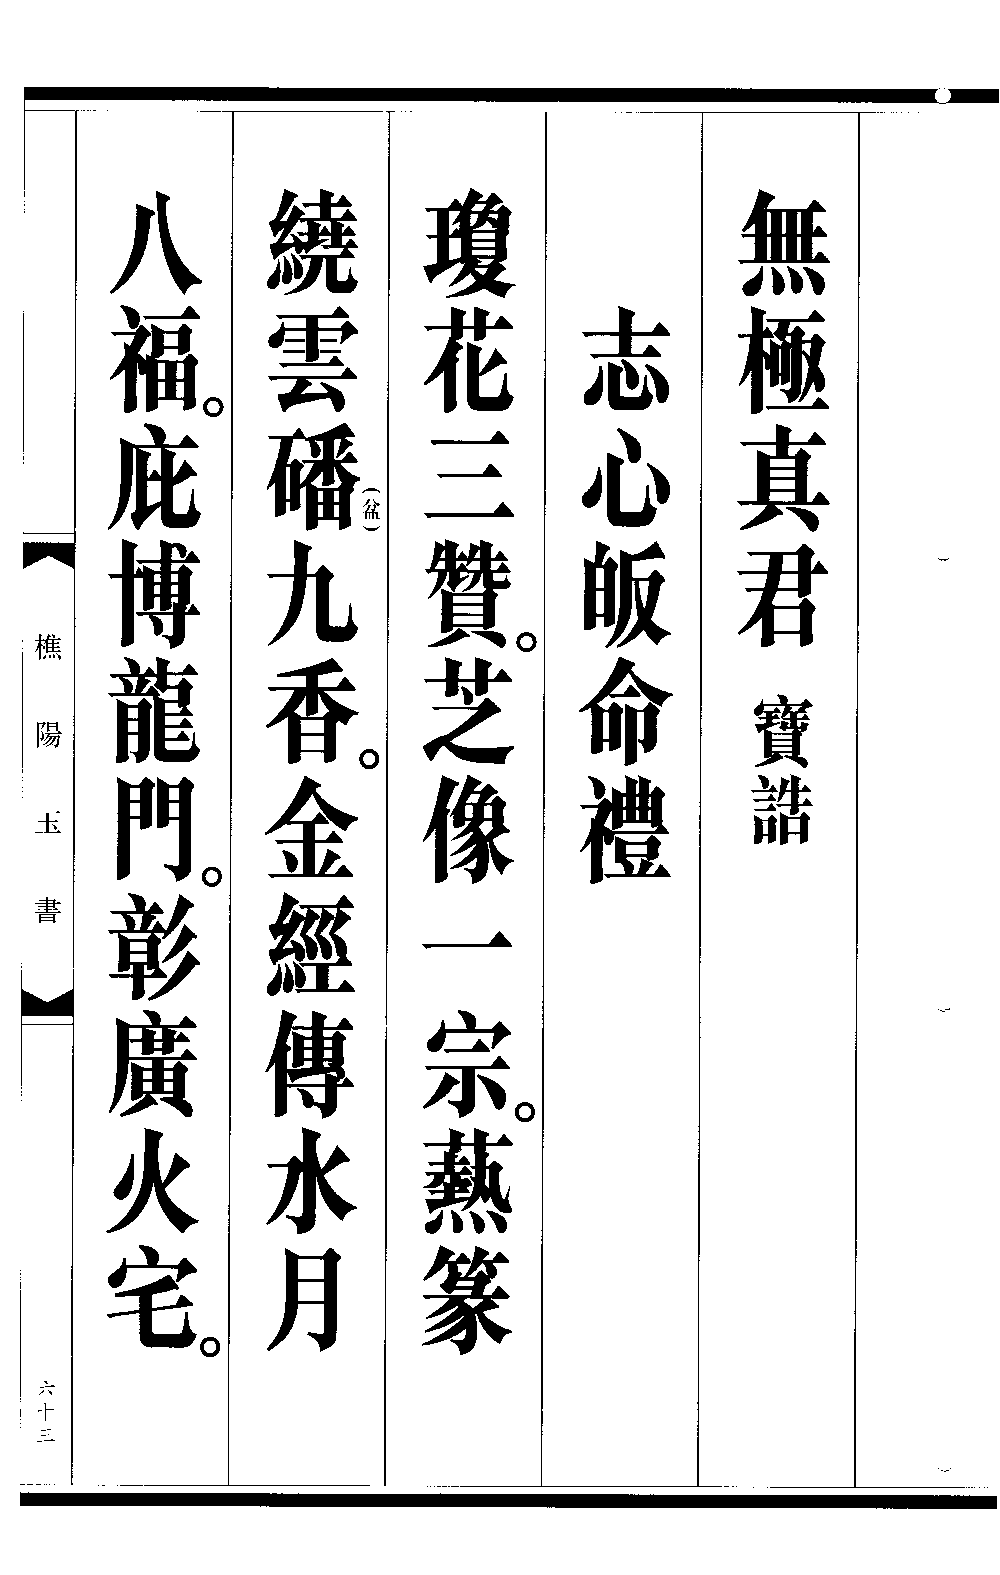 無極真君 寶誥
志心皈命禮
瓊花三贊。芝像一宗。爇篆
繞雲磻(盆)九香。金經傳水月
八福。庇博龍門。彰廣火宅。
樵陽玉書
六十三